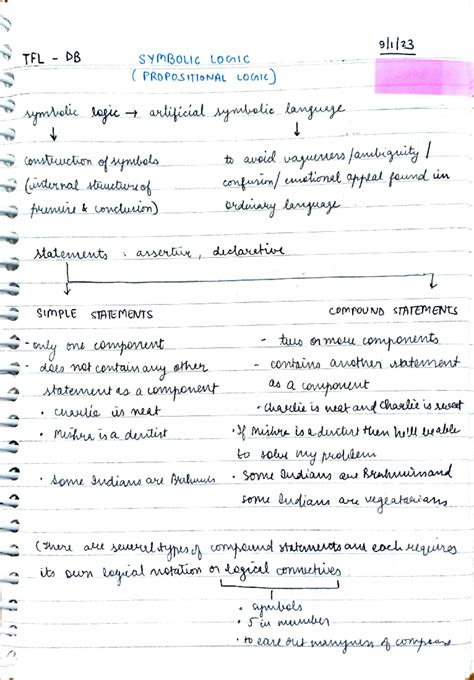 9/1/23
TFL - DB
SYMBOLIC LOGIC
(PROPOSITIONAL LOGIC)
symbolic logic → artificial symbolic language
↓ ↓
construction of symbols
(internal structure of
premise & conclusion)
to avoid vagueness/ambiguity/
confusion/emotional appeal found in
ordinary language
statements : assertive, declarative
SIMPLE STATEMENTS
- only one component
- does not contain any other
statement as a component
• Charlie is neat
• Mishra is a dentist
• Some Indians are
COMPOUND STATEMENTS
- two or more components
- contains another statement
as a component
• Charlie is neat and Charlie is sweet
• If Mishra is a dentist then he'll be able
to solve my problem
• Some Indians are and
some Indians are vegetarians
(There are several types of compound statements and each requires
its own logical notation or logical connectives
• symbols
• 5 in number
• to out of